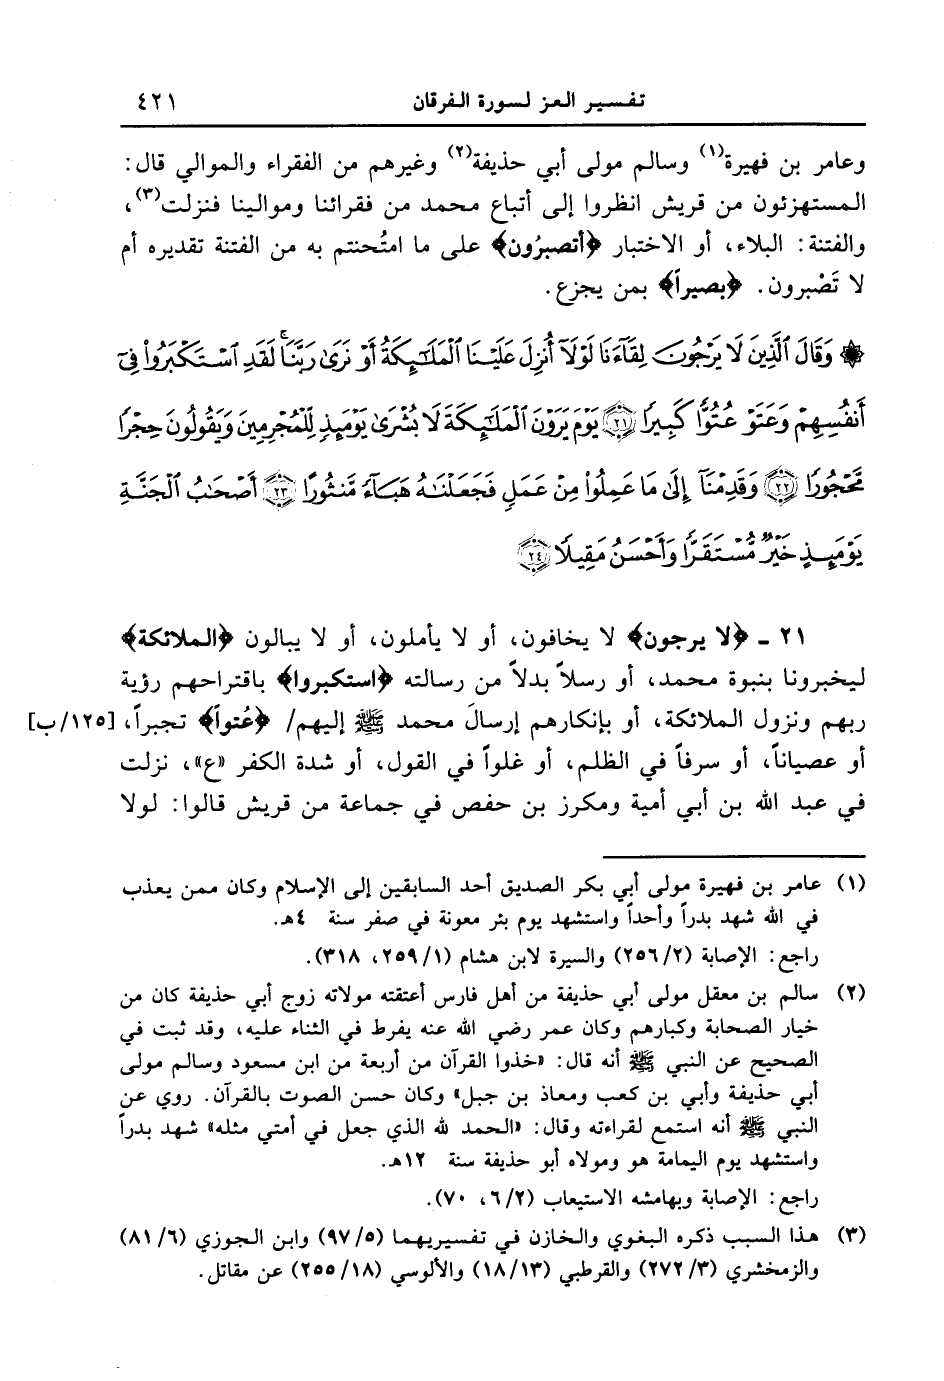 تفسير العز لسورة الفرقان ٤٢١
وعامر بن فهيرة(١) وسالم مولى أبي حذيفة(٢) وغيرهم من الفقراء والموالي قال:
المستهزئون من قريش انظروا إلى أتباع محمد من فقرائنا وموالينا فنزلت(٣)،
والفتنة: البلاء، أو الاختبار ﴿أتصبرُون﴾ على ما امتُحنتم به من الفتنة تقديره أم
لا تَصْبرون. ﴿بصيراً﴾ بمن يجزع.
۞ وَقَالَ ٱلَّذِينَ لَا يَرۡجُونَ لِقَآءَنَا لَوۡلَآ أُنزِلَ عَلَيۡنَا ٱلۡمَلَٰٓئِكَةُ أَوۡ نَرَىٰ رَبَّنَاۗ لَقَدِ ٱسۡتَكۡبَرُواْ فِيٓ
أَنفُسِهِمۡ وَعَتَوۡ عُتُوّٗا كَبِيرٗا ٢١ يَوۡمَ يَرَوۡنَ ٱلۡمَلَٰٓئِكَةَ لَا بُشۡرَىٰ يَوۡمَئِذٖ لِّلۡمُجۡرِمِينَ وَيَقُولُونَ حِجۡرٗا
مَّحۡجُورٗا ٢٢ وَقَدِمۡنَآ إِلَىٰ مَا عَمِلُواْ مِنۡ عَمَلٖ فَجَعَلۡنَٰهُ هَبَآءٗ مَّنثُورًا ٢٣ أَصۡحَٰبُ ٱلۡجَنَّةِ
يَوۡمَئِذٍ خَيۡرٞ مُّسۡتَقَرّٗا وَأَحۡسَنُ مَقِيلٗا ٢٤
٢١ ـ ﴿لا يرجون﴾ لا يخافون، أو لا يأملون، أو لا يبالون ﴿الملائكة﴾
ليخبرونا بنبوة محمد، أو رسلاً بدلاً من رسالته ﴿استكبروا﴾ باقتراحهم رؤية
ربهم ونزول الملائكة، أو بإنكارهم إرسالَ محمد ﷺ إليهم/ ﴿عُتواً﴾ تجبراً، [١٢٥/ب]
أو عصياناً، أو سرفاً في الظلم، أو غلواً في القول، أو شدة الكفر «ع»، نزلت
في عبد الله بن أبي أمية ومكرز بن حفص في جماعة من قريش قالوا: لولا
(١) عامر بن فهيرة مولى أبي بكر الصديق أحد السابقين إلى الإسلام وكان ممن يعذب
في الله شهد بدراً وأحداً واستشهد يوم بئر معونة في صفر سنة ٤هـ.
راجع: الإصابة (٢/٢٥٦) والسيرة لابن هشام (١/٢٥٩، ٣١٨).
(٢) سالم بن معقل مولى أبي حذيفة من أهل فارس أعتقته مولاته زوج أبي حذيفة كان من
خيار الصحابة وكبارهم وكان عمر رضي الله عنه يفرط في الثناء عليه، وقد ثبت في
الصحيح عن النبي ﷺ أنه قال: «خذوا القرآن من أربعة من ابن مسعود وسالم مولى
أبي حذيفة وأبي بن كعب ومعاذ بن جبل» وكان حسن الصوت بالقرآن. روي عن
النبي ﷺ أنه استمع لقراءته وقال: «الحمد لله الذي جعل في أمتي مثله» شهد بدراً
واستشهد يوم اليمامة هو ومولاه أبو حذيفة سنة ١٢هـ.
راجع: الإصابة وبهامشه الاستيعاب (٢/٦، ٧٠).
(٣) هذا السبب ذكره البغوي والخازن في تفسيريهما (٥/٩٧) وابن الجوزي (٦/٨١)
والزمخشري (٣/٢٧٢) والقرطبي (١٣/١٨) والألوسي (١٨/٢٥٥) عن مقاتل.